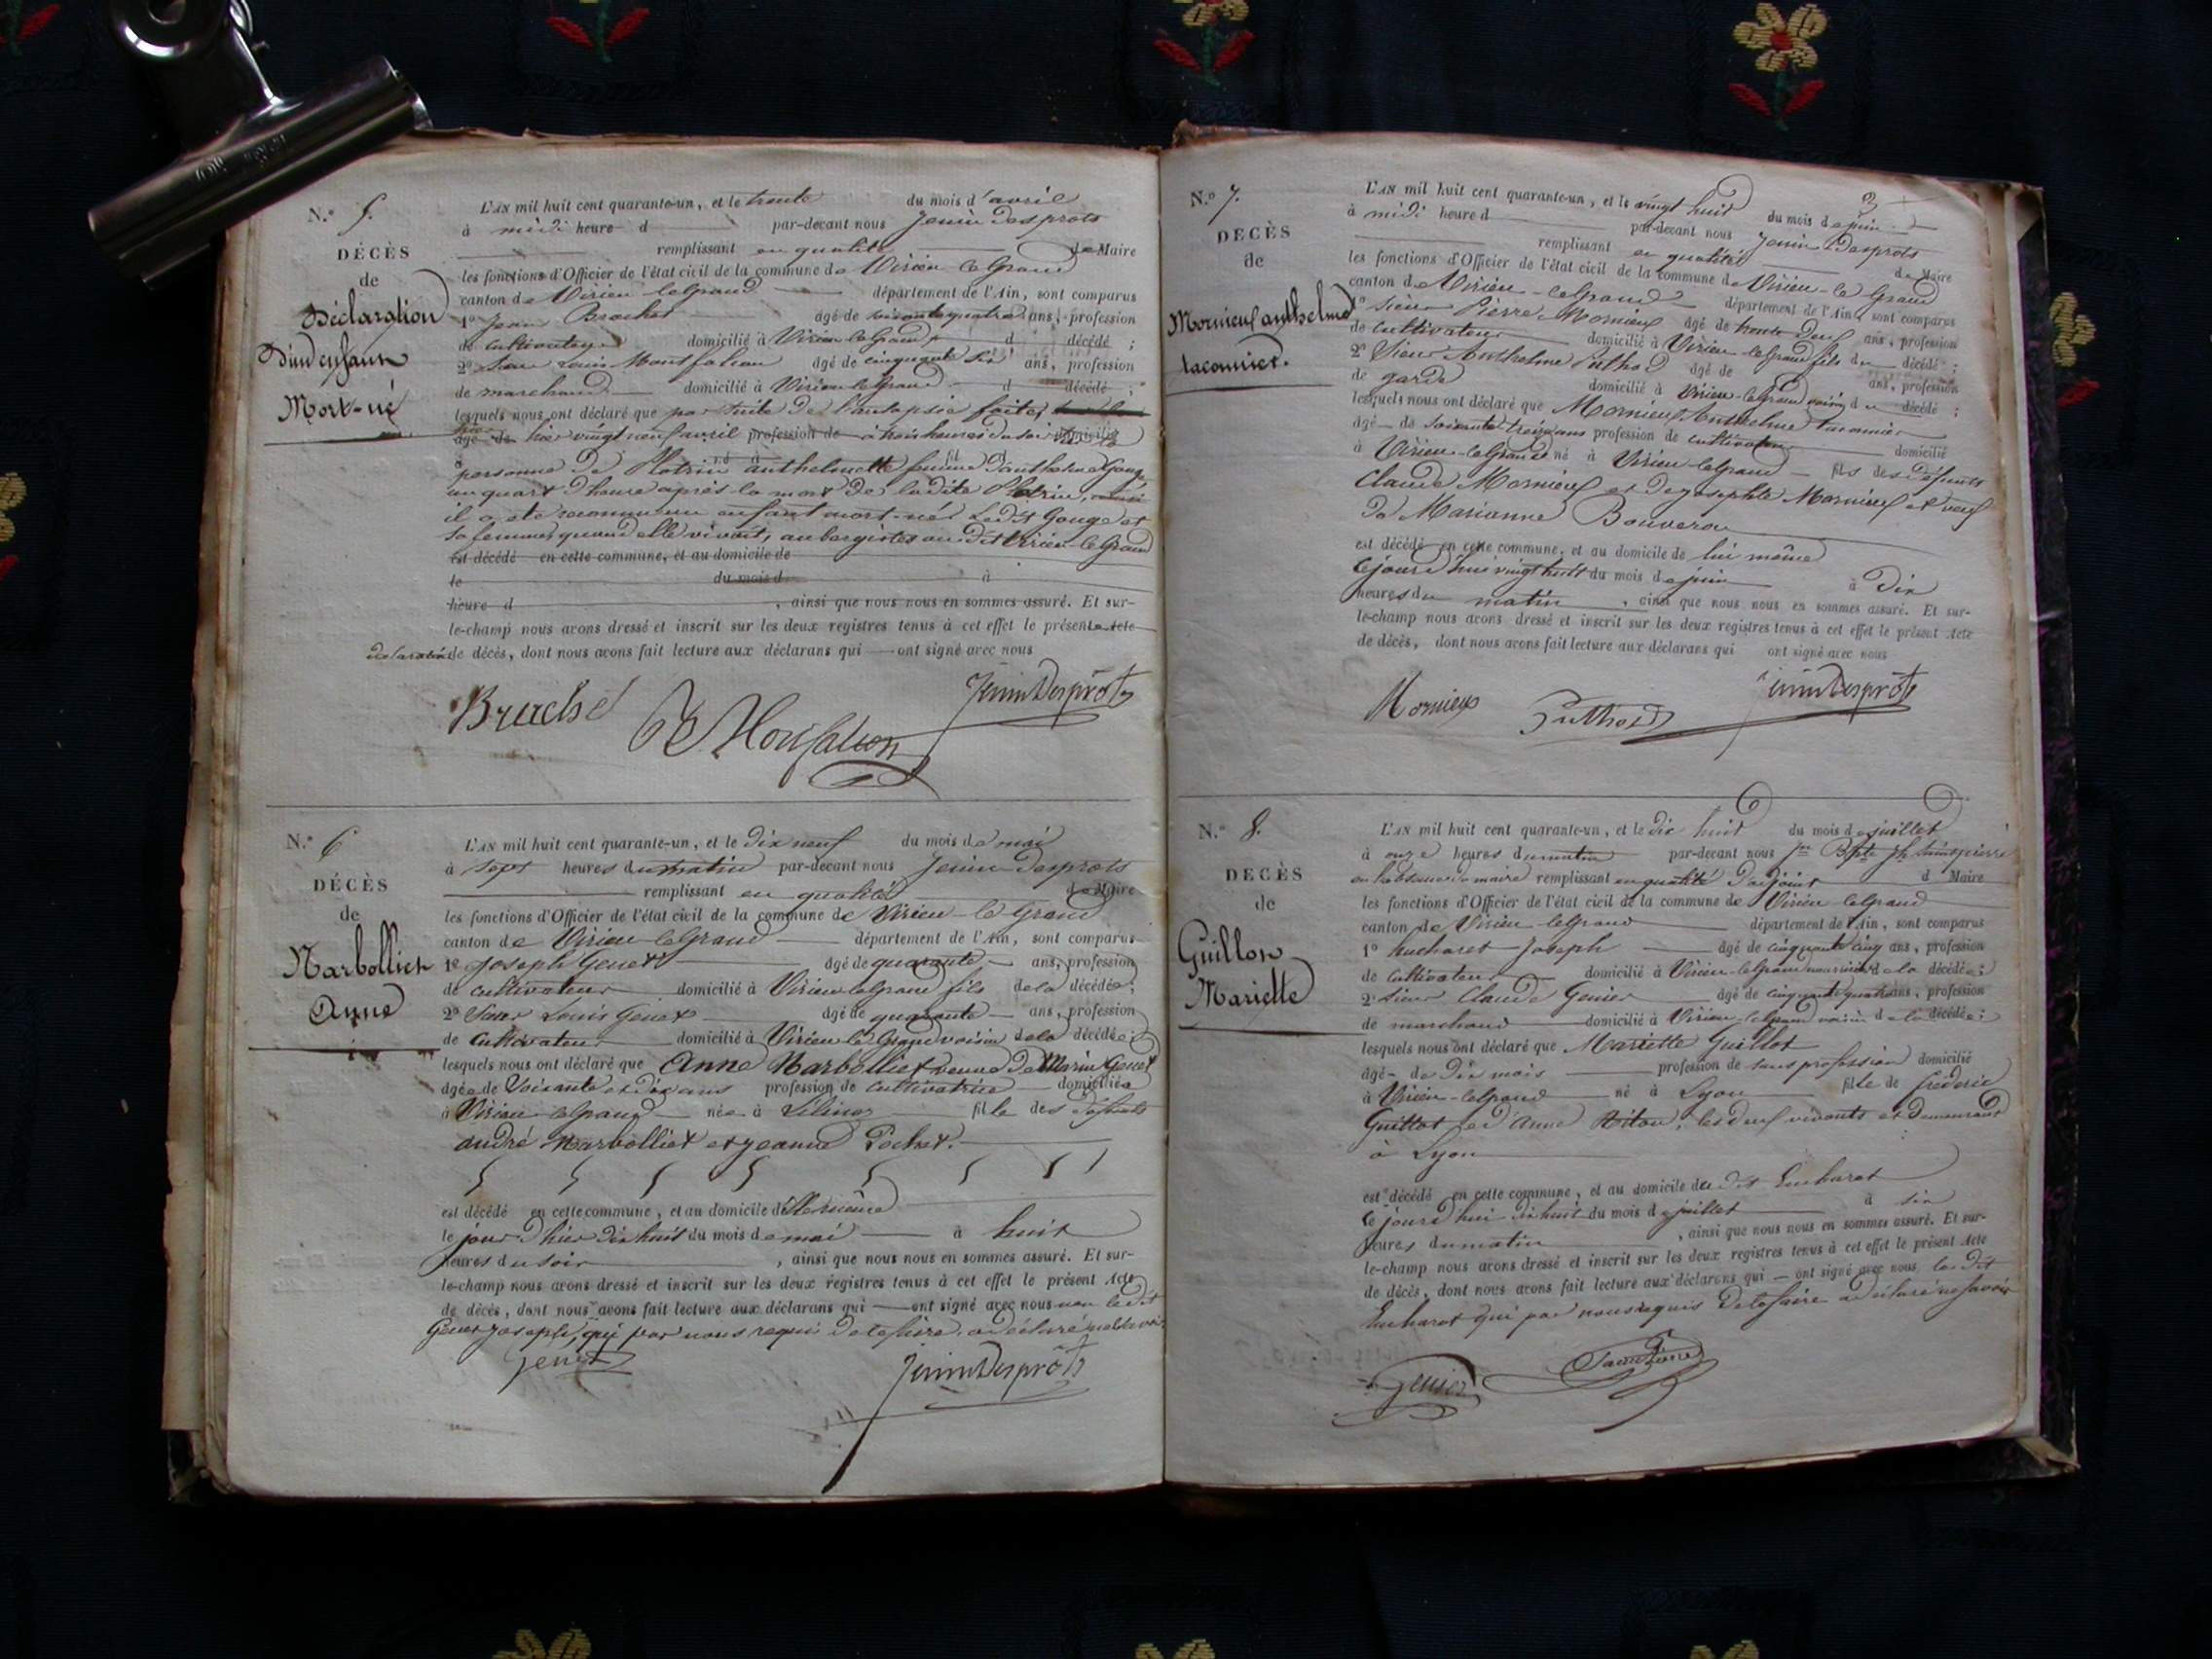 N.° 5.
DÉCÈS
de
Déclaration
D'un enfant
Mort-né
L'AN mil huit cent quarante-un, et le trente du mois d'avril
à midi heure d par-devant nous Jenin Desprots
remplissant en qualité de Maire
les fonctions d'Officier de l'état civil de la commune de Virieu-le-Grand
canton de Virieu le Grand département de l'Ain, sont comparus
1° Jean Brachet âgé de ans, profession
de cultivateur domicilié à Virieu le Grand d décédé ;
2° Sieur Louis Montfalcon âgé de cinquante six ans, profession
de marchand domicilié à Virieu le Grand d décédé ;
lesquels nous ont déclaré que par suite de l'autopsie faite
âgé de hier vingt neuf avril profession de à trois heures du soir domicilié
personne de Plotrin anthelmette femme d'anthelme Gouge
un quart d'heure après la mort de ladite Plotrin,
il a été reconnu un enfant mort-né. Ledit Gouge et
sa femme, quand elle vivait, aubergistes audit Virieu-le-Grand
est décédé en cette commune, et au domicile de
le du mois d à
heure d , ainsi que nous nous en sommes assuré. Et sur-
le-champ nous avons dressé et inscrit sur les deux registres tenus à cet effet le présent acte
déclaration de décès, dont nous avons fait lecture aux déclarans qui ont signé avec nous
Brachet Montfalcon JeninDesprots
N.° 6
DÉCÈS
de
Marbolliet
Anne
L'AN mil huit cent quarante-un, et le dix neuf du mois de mai
à sept heures du matin par-devant nous Jenin Desprots
remplissant en qualité de Maire
les fonctions d'Officier de l'état civil de la commune de Virieu-le Grand
canton de Virieu-le Grand département de l'Ain, sont comparus
1° Joseph Genet âgé de quarante ans, profession
de cultivateur domicilié à Virieu le Grand fils de la décédée ;
2° Sieur Louis Genet âgé de quarante ans, profession
de cultivateur domicilié à Virieu le Grand voisin de la décédée ;
lesquels nous ont déclaré que Anne Marbolliet veuve de Marin Genet
âgée de soixante et dix ans profession de cultivatrice domiciliée
à Virieu-le Grand née à fille des défunts
andré Marbolliet et jeanne Pochet.
est décédé en cette commune, et au domicile d'Elle même
le jour d'hier dix huit du mois de mai à huit
heures du soir , ainsi que nous nous en sommes assuré. Et sur-
le-champ nous avons dressé et inscrit sur les deux registres tenus à cet effet le présent Acte
de décès, dont nous avons fait lecture aux déclarans qui ont signé avec nous non ledit
Genet joseph, qui par nous requi de le faire, a déclaré
Genet JeninDesprots
N.° 7.
DÉCÈS
de
Mornieux anthelme
taconnier.
3
L'AN mil huit cent quarante-un, et le vingt huit du mois de juin
à midi heure d par-devant nous Jenin Desprots
remplissant en qualité de Maire
les fonctions d'Officier de l'état civil de la commune de Virieu-le Grand
canton de Virieu-le Grand département de l'Ain, sont comparus
1° Sieur Pierre Mornieux âgé de trente deux ans, profession
de cultivateur domicilié à Virieu-le Grand fils du décédé ;
2° Sieur Anthelme Puthod âgé de ans, profession
de garde domicilié à Virieu-le Grand voisin du décédé ;
lesquels nous ont déclaré que Mornieux Anthelme taconnier
âgé de soixante treize ans profession de cultivateur domicilié
à Virieu-le Grand né à Virieu-le Grand fils des défunts
Claude Mornieux et de josephte Mornieux et veuf
de Marianne Bouveron
est décédé en cette commune, et au domicile de lui même
Cejourd'hui vingt huit du mois de juin à dix
heures du matin , ainsi que nous nous en sommes assuré. Et sur-
le-champ nous avons dressé et inscrit sur les deux registres tenus à cet effet le présent Acte
de décès, dont nous avons fait lecture aux déclarans qui ont signé avec nous
Mornieux Puthod JeninDesprots
N.° 8.
DÉCÈS
de
Guillon
Mariette
L'AN mil huit cent quarante-un, et le dix huit du mois de juillet
à onze heures du matin par-devant nous Jn Bpte Jh
en l'absence du maire remplissant en qualité d'adjoint d Maire
les fonctions d'Officier de l'état civil de la commune de Virieu-le Grand
canton de Virieu-le Grand département de l'Ain, sont comparus
1° Joseph âgé de cinquante cinq ans, profession
de cultivateur domicilié à Virieu-le Grand de la décédée ;
2° Sieur Claude Genier âgé de cinquante quatre ans, profession
de marchand domicilié à Virieu-le Grand voisin de la décédée ;
lesquels nous ont déclaré que Mariette Guillot
âgé de dix mois profession de sans profession domicilié
à Virieu-le Grand né à Lyon fille de frédéric
Guillot et d'Anne Riton, les deux vivants et demeurant
à Lyon
est décédé en cette commune, et au domicile du dit
Cejourd'hui dix huit du mois de juillet à six
heures du matin , ainsi que nous nous en sommes assuré. Et sur-
le-champ nous avons dressé et inscrit sur les deux registres tenus à cet effet le présent Acte
de décès, dont nous avons fait lecture aux déclarans qui ont signé avec nous, le dit
qui par nous requis de le faire a déclaré ne savoir
Genier